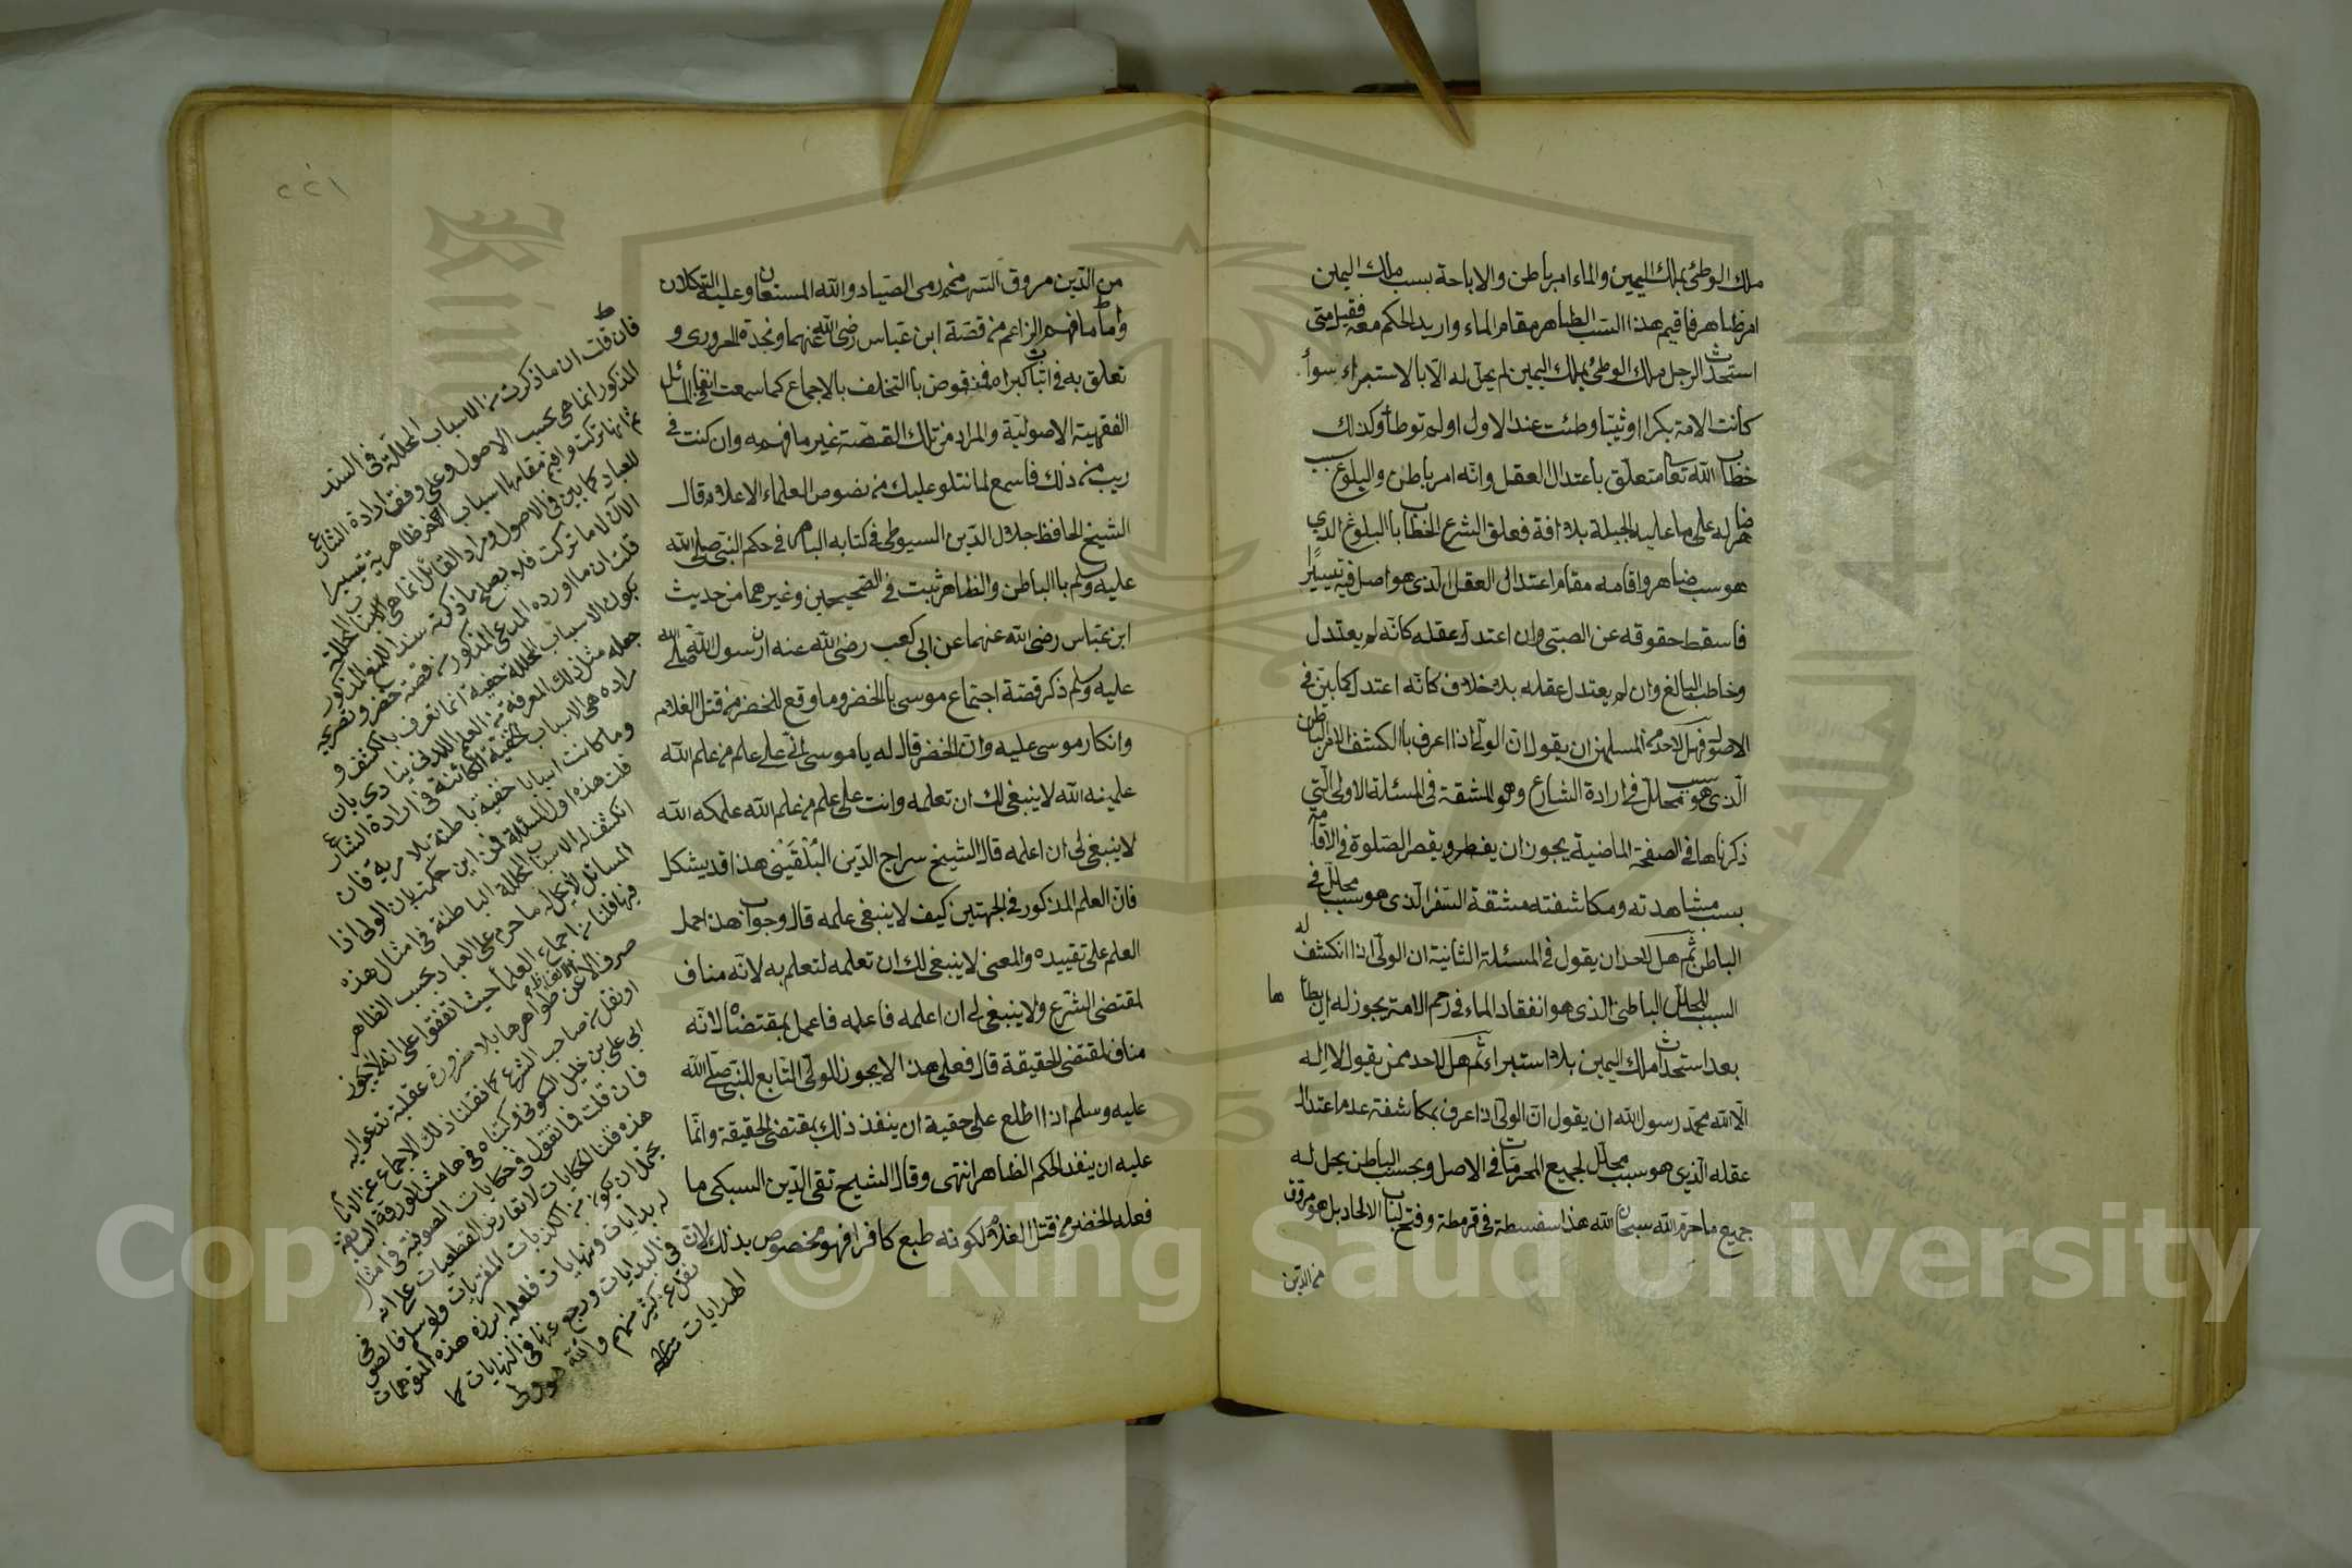 ملك الوطئ بملك اليمين والماء امر باطن والاباحة بسبب ملك اليمين
امر ظاهر فاقيم هذا السبب الظاهر مقام الماء واريد الحكم معه فقيل متى
استحدث الرجل ملك الوطئ بملك اليمين لم يحل له الا بالاستبراء سوأ
كانت الامة بكرا او ثيبا وطئت عند الاول او لم توطأ وكذلك
خطاب الله تعا متعلق باعتدال العقل وانه امر باطن والبلوغ سبب
ضاهر له على ما عليه الجبلة بلا افة فعلق الشرع الخطاب بالبلوغ الذي
هو سبب ضاهر واقامه مقام اعتدال العقل الذى هو اصل فيه تيسيرا
فاسقط حقوقه عن الصبى وان اعتدل عقله كانه لم يعتدل
وخاطب البالغ وان لم يعتدل عقله بلا خلاف كانه اعتدل كما بين في
الاصول فهل لاحد من المسلمين ان يقول ان الولى اذا اعرف بالكشف الامر الباطن
الذى هو سبب محلل في ارادة الشارع وهو المشقة في المسئلة الاولى التي
ذكرناها في الصفحة الماضية يجوز ان يفطر ويقصر الصلوة في الاقامة
بسبب مشاهدته ومكاشفته مشقة السفر الذى هو سبب محلل في
الباطن ثم هل لاحد ان يقول في المسئلة الثانية ان الولى اذا انكشف له
السبب المحلل الباطنى الذى هو انعقاد الماء في رحم الامة يجوز له ان يطأ ها
بعد استحداث ملك اليمين بلا استبراء ثم هل لاحد ممن يقول لا اله
الا الله محمد رسول الله ان يقول ان الولى اذا عرف بمكاشفة عدم اعتدال
عقله الذي هو سبب محلل لجميع المحرمات في الاصل وبحسب الباطن يحل له
جميع ما حرم الله سبحان الله هذا سفسطة في قرمطة وفتح لباب الالحاد بل هو مروق
من الدين
٢٢١
من الدين مروق السهم من رمى الصياد والله المستعان وعليه التكلان
واما ما فهم الزاعم من قصة ابن عباس رضى الله عنهما ونجدة الحرورى و
تعلق به في اثبات كبراه فمنقوض بالتخلف بالاجماع كما سمعت انفا في المسائل
الفقهية الاصولية والمراد من تلك القصة غير ما فهمه وان كنت في
ريب من ذلك فاسمع لما نتلو عليك من نصوص العلماء الاعلام قال
الشيخ الحافظ جلال الدين السيوطى في كتابه الباهر في حكم النبى صلى الله
عليه وسلم بالباطن والظاهر ثبت في الصحيحين وغيرهما من حديث
ابن عباس رضى الله عنهما عن ابى كعب رضى الله عنه ان رسول الله صلى الله
عليه وسلم ذكر قصة اجتماع موسى بالخضر وما وقع للخضر من قتل الغلام
وانكار موسى عليه وان الخضر قال له يا موسى انى على علم من علم الله
علمنيه الله لا ينبغى لك ان تعلمه وانت على علم من علم الله علمكه الله
لا ينبغى لى ان اعلمه قال الشيخ سراج الدين البلقينى هذا قد يشكل
فان العلم المذكور في الجهتين كيف لا ينبغى علمه قال وجوابه هذا حمل
العلم على تقييده والمعنى لا ينبغى لك ان تعلمه لتعلم به لانه مناف
لمقتضى الشرع ولا ينبغى لى ان اعلمه فاعلمه فاعمل بمقتضاه لانه
مناف لمقتضى الحقيقة قال فعلى هذا لا يجوز للولى التابع للنبى صلى الله
عليه وسلم اذا اطلع على حقيقة ان ينفذ ذلك بمقتضى الحقيقة وانما
عليه ان ينفذ الحكم الظاهر انتهى وقال الشيخ تقى الدين السبكى ما
فعله الخضر من قتل الغلام لكونه طبع كافرا فهو مخصوص بذلك لان
فان قلت ان ما ذكرت من الاسباب المحللة في السند
المذكور انما هى بحسب الاصول وعلى وفق ارادة الشارع
ثم انها تركت واقيم مقامها اسباب اخر ظاهرية تيسيرا
للعباد كما بين في الاصول ومراد القائل انما هى الاسباب المحللة
الآن لا ما تركت فلا يصلح ما ذكرته سندا للمنع المذكور
قلت ان ما اورده المدعى المذكور من قصة خضر وتصريحه
بكون الاسباب المحللة خفية انما تعرف بالكشف و
جعله مثل ذلك المعرفة من العلم اللدنى ينادى بان
مراده هى الاسباب الخفية الكائنة في ارادة الشارع
وما كانت اسبابا خفية باطنة بلا مرية فان
قلت هذه اول المسئلة فمن اين حكمت بان الولى اذا
انكشف له الاسباب المحللة الباطنة في امثال هذه
المسائل لا يحل له ما حرم على العباد بحسب الظاهر
فيها قلنا من اجماع العلماء حيث اتفقوا على انه لا يجوز
صرف الالفاظ عن ظواهرها بلا ضرورة عقلية تدعو اليه
او نقل من صاحب الشرع كما نقلنا ذلك الاجماع عن الامام
ابى على بن خليل السكونى وكتبناه في هامش الورقة السابقة
فان قلت فما تقول في حكايات الصوفية في امثال
هذه قلنا الحكايات لا تقارن القطعيات على انه
يحتمل ان يكون من الكذبات المفتريات ولو سلم فالصوفى
له بدايات ونهايات فلعله ابرزه هذه التوهمات
في البدايات ورجع عنها في النهايات كما
نقل عن كثير منهم والله هو ولى
الهدايات